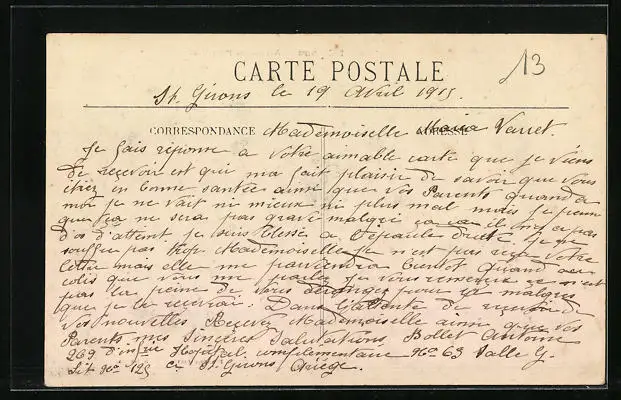 13
CARTE POSTALE
St. Girons le 19 Avril 1915.
CORRESPONDANCE ADRESSE
Mademoiselle Maria Varret.
Je fais réponse a votre aimable carte que je viens
de reçevoir est qui ma fait plaisir de savoir que vous
étiez en bonne santée ainsi que vos Parents quand a
moi je ne vait ni mieux ni plus mal mais je pense
que ça ne sera pas grave malgré il ni a pas
d'os d'atteint je suis blessé a l'épaule droite. Je ne
souffre pas trop. Mademoiselle je n'est pas reçu votre
lettre mais elle me parviendra bientot quand au
colis que vous me parlez je vous remercie ce n'est
pas la peine de vous déranger pour malgres
que je le recevrai. Dans l'attente de reçevoir de
vos nouvelles Recevez Mademoiselle ainsi que vos
Parents mes Sincères Salutations, Bollet Antoine
269 d'inf rie Hopital complémentaire No 63 Salle G.
Lit No 125 a St. Girons Ariège.